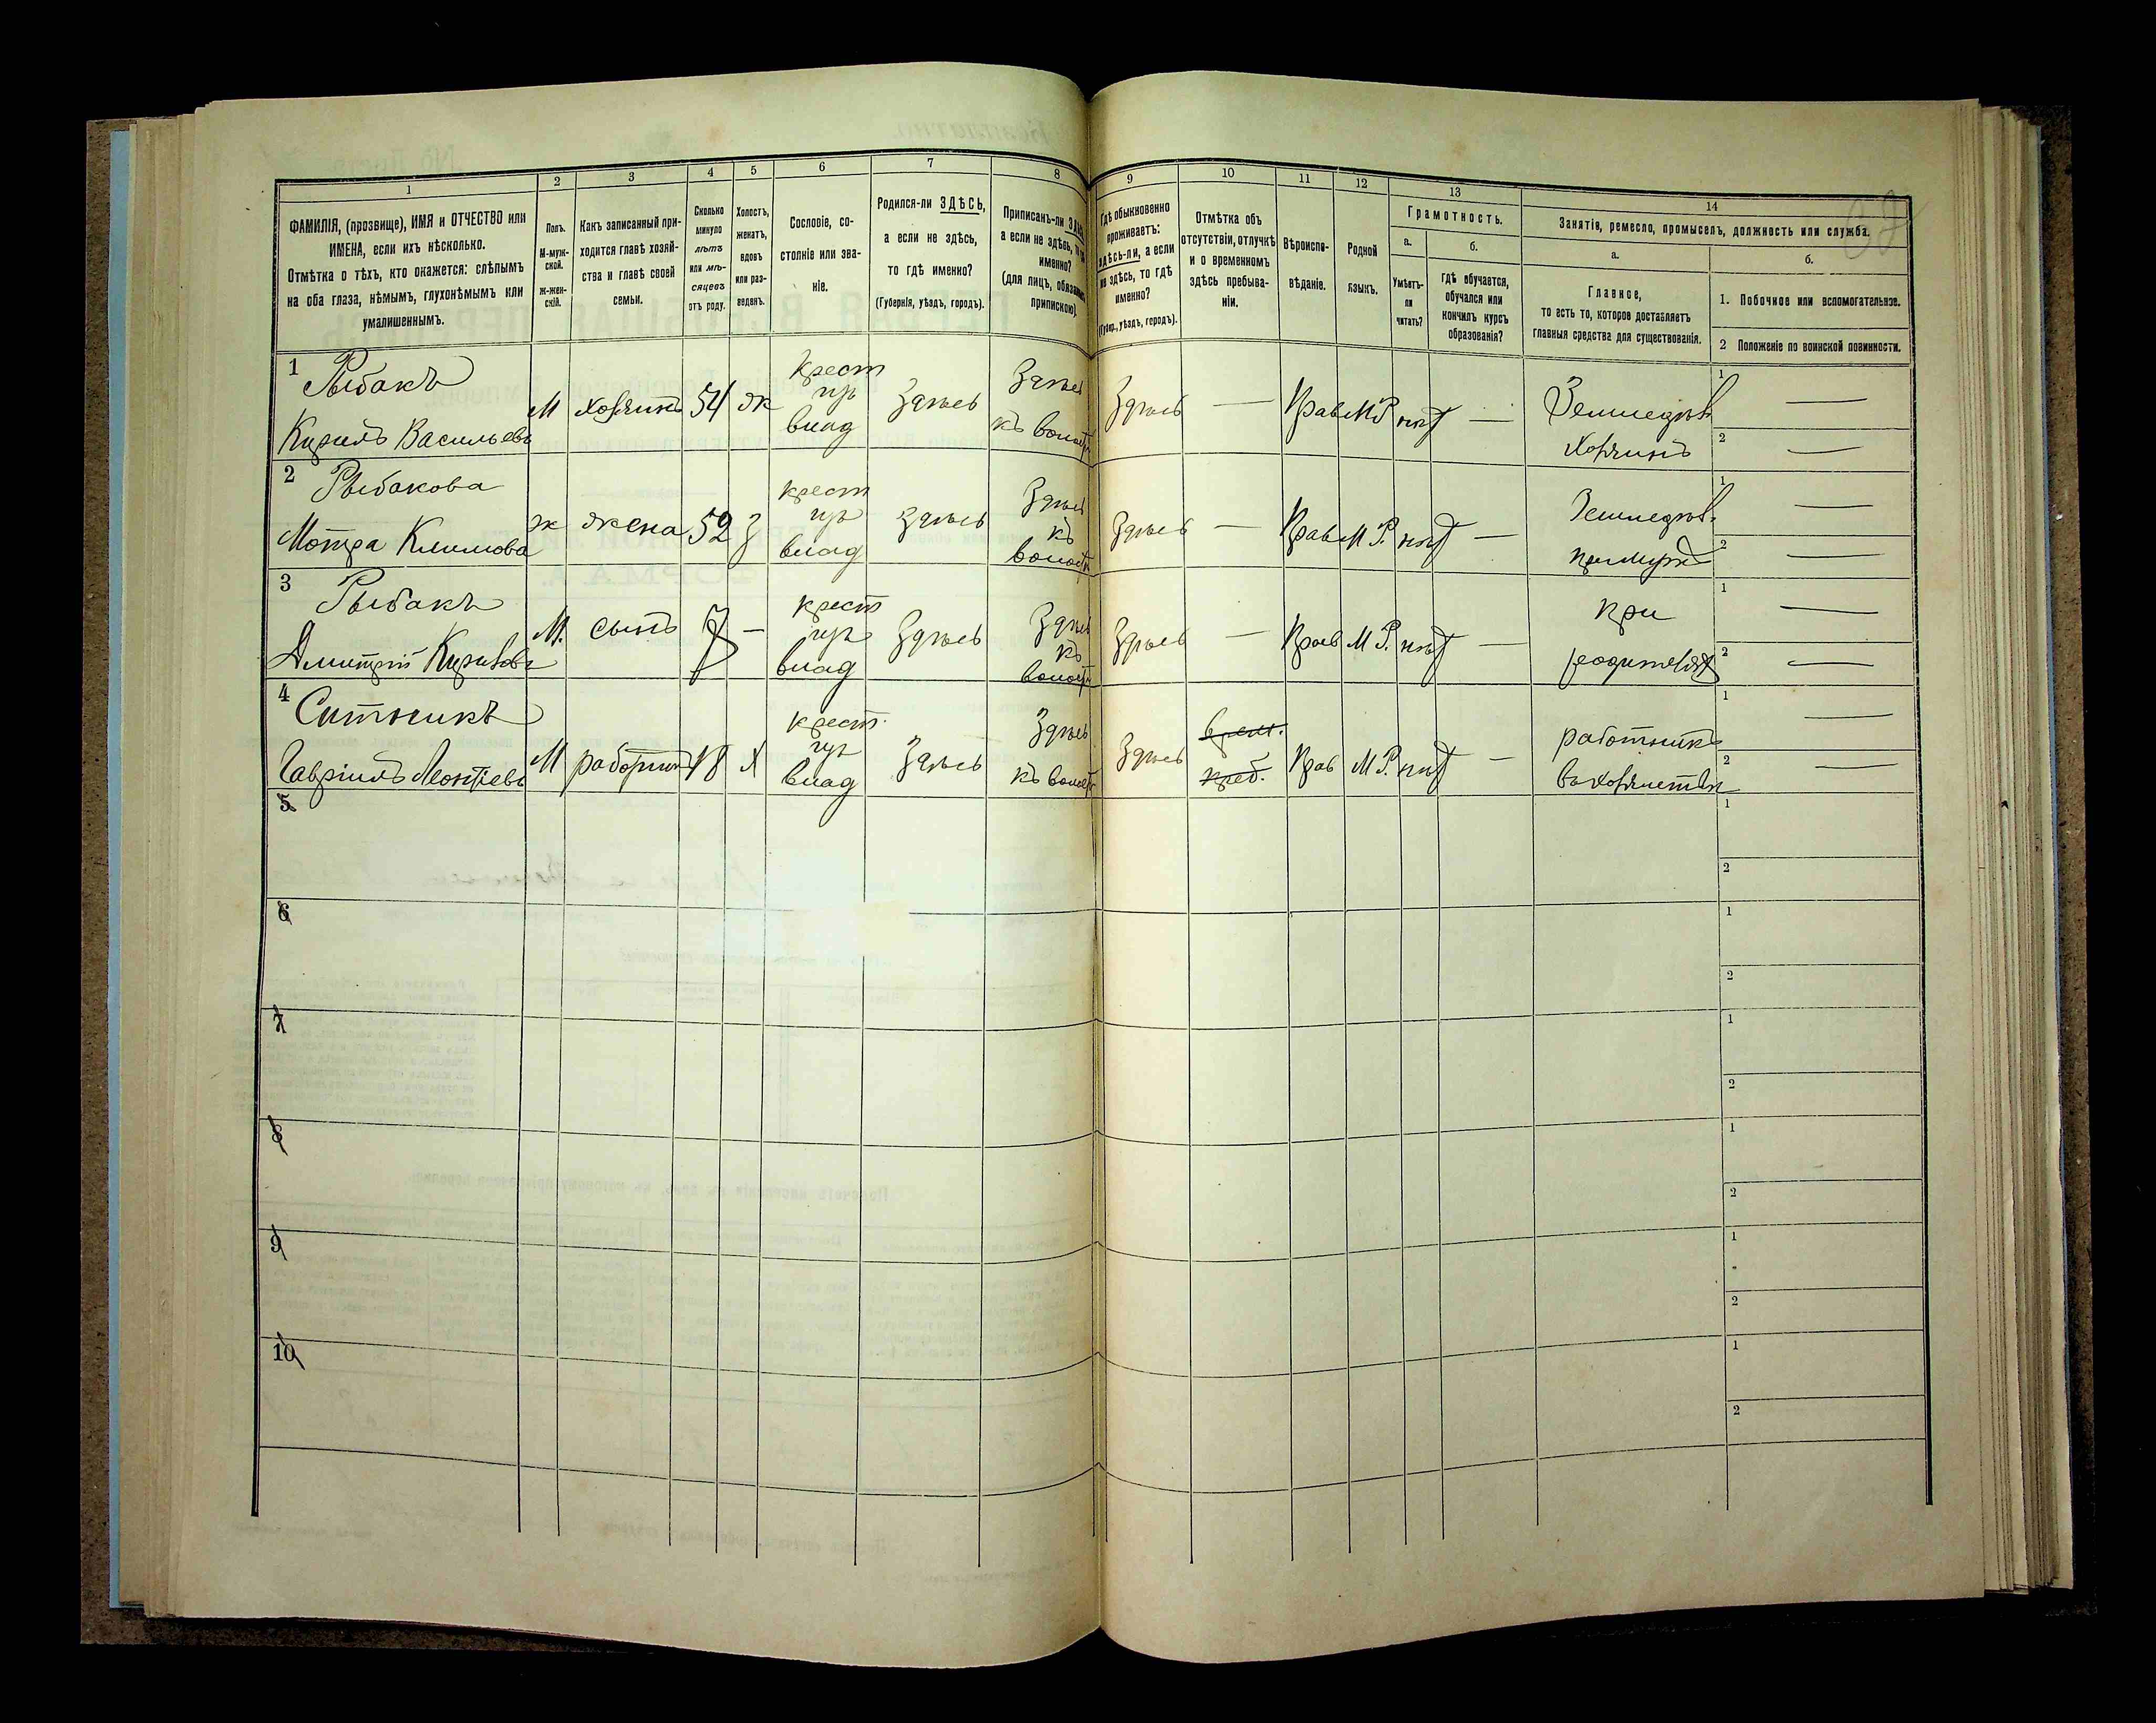 1 2 3 4 5 6 7 8 9 10 11 12 13 14
ФАМИЛІЯ, (прозвище), ИМЯ и ОТЧЕСТВО или
ИМЕНА, если ихъ нѣсколько.
Отмѣтка о тѣхъ, кто окажется: слѣпымъ
на оба глаза, нѣмымъ, глухонѣмымъ или
умалишеннымъ.
Полъ.
М-муж-
ской.
ж-жен-
скій.
Какъ записанный при-
ходится главѣ хозяй-
ства и главѣ своей
семьи.
Сколько
минуло
лѣтъ
или мѣ-
сяцевъ
отъ роду.
Холостъ,
женатъ,
вдовъ
или раз-
веденъ.
Сословіе, со-
стояніе или зва-
ніе.
Родился-ли ЗДѢСЬ,
а если не здѣсь,
то гдѣ именно?
(Губернія, уѣздъ, городъ).
Приписанъ-ли
а если не здѣсь,
именно?
(для лицъ,
припискою).
Гдѣ обыкновенно
проживаетъ:
здѣсь-ли, а если
не здѣсь, то гдѣ
именно?
(Губер., уѣздъ, городъ).
Отмѣтка объ
отсутствіи, отлучкѣ
и о временномъ
здѣсь пребыва-
ніи.
Вѣроиспо-
вѣданіе.
Родной
языкъ.
Грамотность.
а.
Умѣетъ-
ли
читать?
б.
Гдѣ обучается,
обучался или
кончилъ курсъ
образованія?
Занятія, ремесло, промыселъ, должность или служба.
а.
Главное,
то есть то, которое доставляетъ
главныя средства для существованія.
б.
1. Побочное или вспомогательное.
2 Положеніе по воинской повинности.
1 Рыбакъ
Кирилъ Васильевъ
М хозяинъ 54 ж
крест
изъ
влад
Здѣсь
Здѣсь
къ волост
Здѣсь — Прав М Р нѣт —
Земледѣл
хозяинъ
1 —
2 —
2 Рыбакова
Мотра Климова
ж жена 52 З
крест
изъ
влад
Здѣсь
Здѣсь
къ
волост
Здѣсь — Прав М Р. нѣт —
Земледѣл.
при мужѣ
1 —
2 —
3 Рыбакъ
Дмитрій Кириловъ
М. сынъ 7 —
крест
изъ
влад
Здѣсь
Здѣсь
къ
волост
Здѣсь — Прав М Р. нѣт —
при
родителях
1 —
2 —
4 Ситникъ
Гавріилъ Леонтіевъ
М работник 18 х
крест.
изъ
влад
Здѣсь
Здѣсь
къ волост
Здѣсь
врем.
преб.
Прав М Р. нѣт —
работникъ
въ хозяйствѣ
1 —
2 —
5
1
2
6
1
2
7
1
2
8
1
2
9
1
2
10
1
2